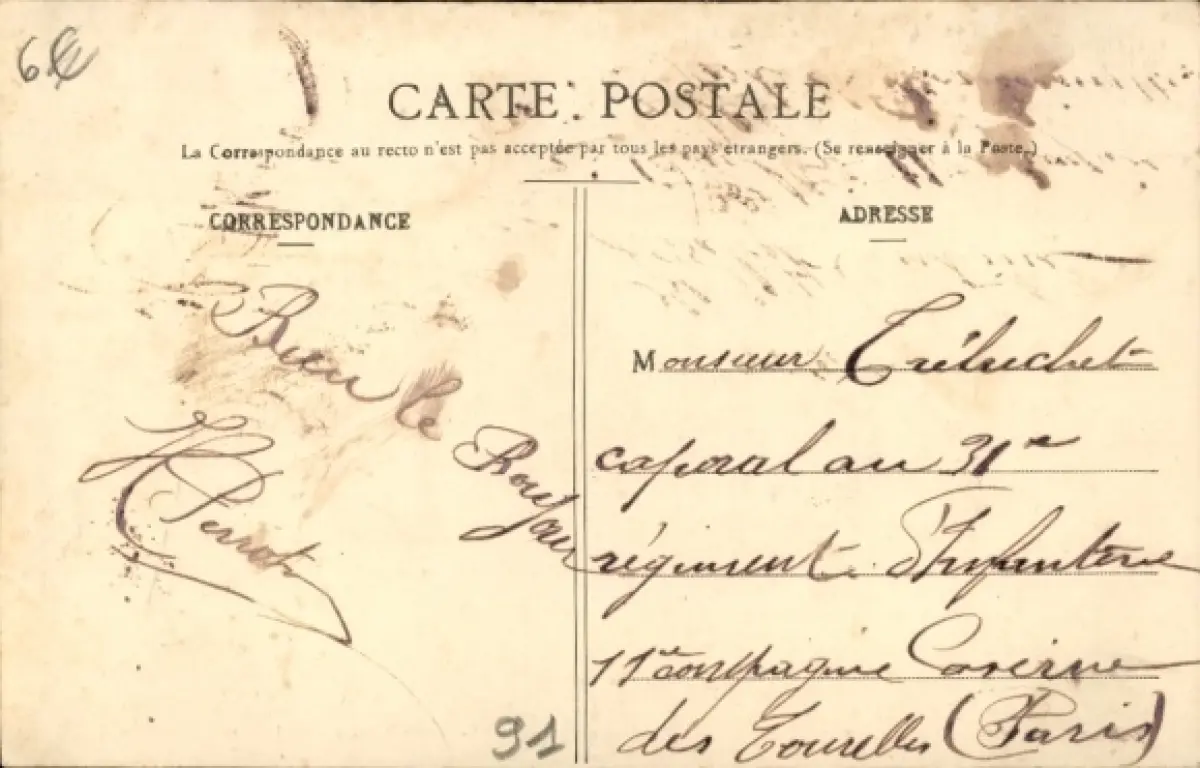 6€
CARTE POSTALE
La Correspondance au recto n'est pas acceptée par tous les pays étrangers. (Se renseigner à la Poste.)
CORRESPONDANCE
Bien le
Bonjour
Perrot
91
ADRESSE
Monsieur Trébuchet
caporal au 31e
régiment d'Infanterie
11e compagnie Caserne
des Tourelles (Paris)